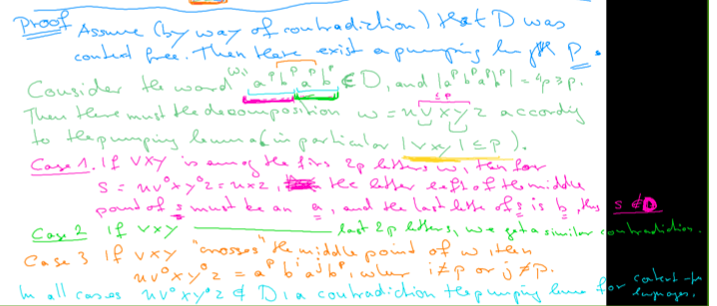 Proof Assume (by way of contradiction) that D was
context free. Then there exist a pumping length P.
Consider the word w: a^p b^p a^p b^p ∈ D, and |a^p b^p a^p b^p| = 4p ≥ p.
≤ p
Then there must the decomposition w = uvxyz according
to the pumping lemma (in particular |vxy| ≤ p).
Case 1. If vxy is among the first 2p letters w, then for
s = uv⁰xy⁰z = uxz, the letter left of the middle
point of s must be an a, and the last letter of s is b, thus s ∉ D
Case 2 If vxy ——— last 2p letters, we get a similar contradiction.
Case 3 If vxy "crosses" the middle point of w then
uv⁰xy⁰z = a^p b^i a^j b^p, where i ≠ p or j ≠ p.
In all cases uv⁰xy⁰z ∉ D, a contradiction the pumping lemma for context-free
languages.